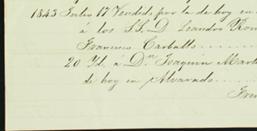 1843 Julio 17 Vendido por la de hoy en
á los SS. D. Leandro
Francisco Carballo
20 Id. a Dn. Joaquin
de hoy en Alvarado